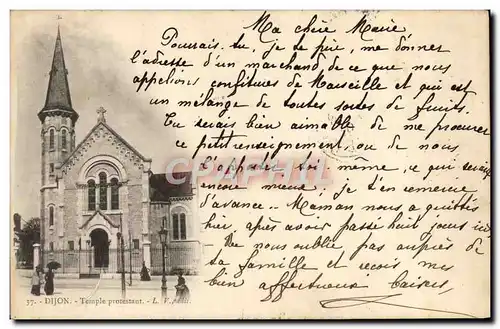 Ma chère Marie
Pourrais-tu, je te prie, me donner
l'adresse d'un marchand de ce que nous
appelions confitures de Marseille et qui est
un mélange de toutes sortes de fruits.
Tu serais bien aimable de me procurer
ce petit renseignement, ou de nous
l'apporter toi même, ce qui serait
encore mieux, je t'en remercie
d'avance. Maman nous a quittés
hier après avoir passé huit jours ici
nous oublie pas auprès de
ta famille et reçois mes
bien affectueux baisers
CPAPHIL
37. - DIJON. - Temple protestant. - L. V., édit.